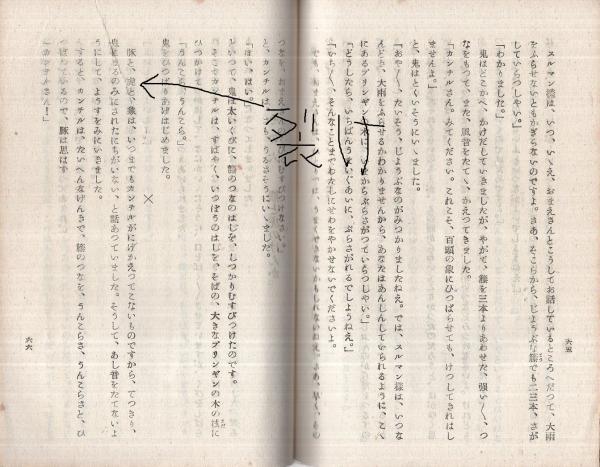 スルマン樣は、いつ、いゝえ、おまえさんとこうしてお話しているところへだつて、大雨
をふらせないともかぎらないのですよ。さあ、そこらから、じようぶな籐でも二三本、さが
していらつしやい。」
「かわりました。」
鬼はどこかへ、かけだしていきましたが、やがて、籐を三本よりあわせた、強い〳〵、つ
なをもつて、また、風音をたてゝ、かえつてきました。
「カンチルさん。みてください。これこそ、百頭の象にひつぱらせても、けつしてきれはし
ませんよ。」
と、鬼はとくいそうにいゝました。
「おや〳〵、たいそう、じようぶなのがみつかりましたねえ。では、スルマン樣は、いつな
んどき、大雨をふらせるかわかりませんから、あなたはあんしんしていられるように、こゝ
にあるブリンギンの木に、
からぶらさがつていらつしやい。」
「どうしたら、いちばんうまいぐあいに、ぶらさがれるでしようねえ。」
「かち〳〵、そんなことまでわたしにせわをやかせないでくださいよ。
六五
列衣
つなを、おまえ
むすびつけなさい。」
と、カンチルは、
うるさそうにいゝました。
「はい、はい。」
といつて、鬼は太いくびに、籐のつなのはじを、しつかりむすびつけたのです。
そこでカンチルは、すばやく、いつぽうのはじを、そばの、大きなブリンギンの木の枝に
ひつかけて、
「うんとこら、うんとこら。」
鬼をひつぱりあげはじめました。
×
豚と、虎と、象は、いつまでもカンチルがにげかえつてこないものですから、てつきり、
鬼にまるのみにされたにちがいない、と話あつていました。そうして、あし音をたてないよ
うにして、ようすをみにいきました。
すると、カンチルは、たいへんなげんきで、籐のつなを、うんとこらさ、うんとこらさと、ひ
つぱつているので、豚は思はず
「カンチルさん！」
六六